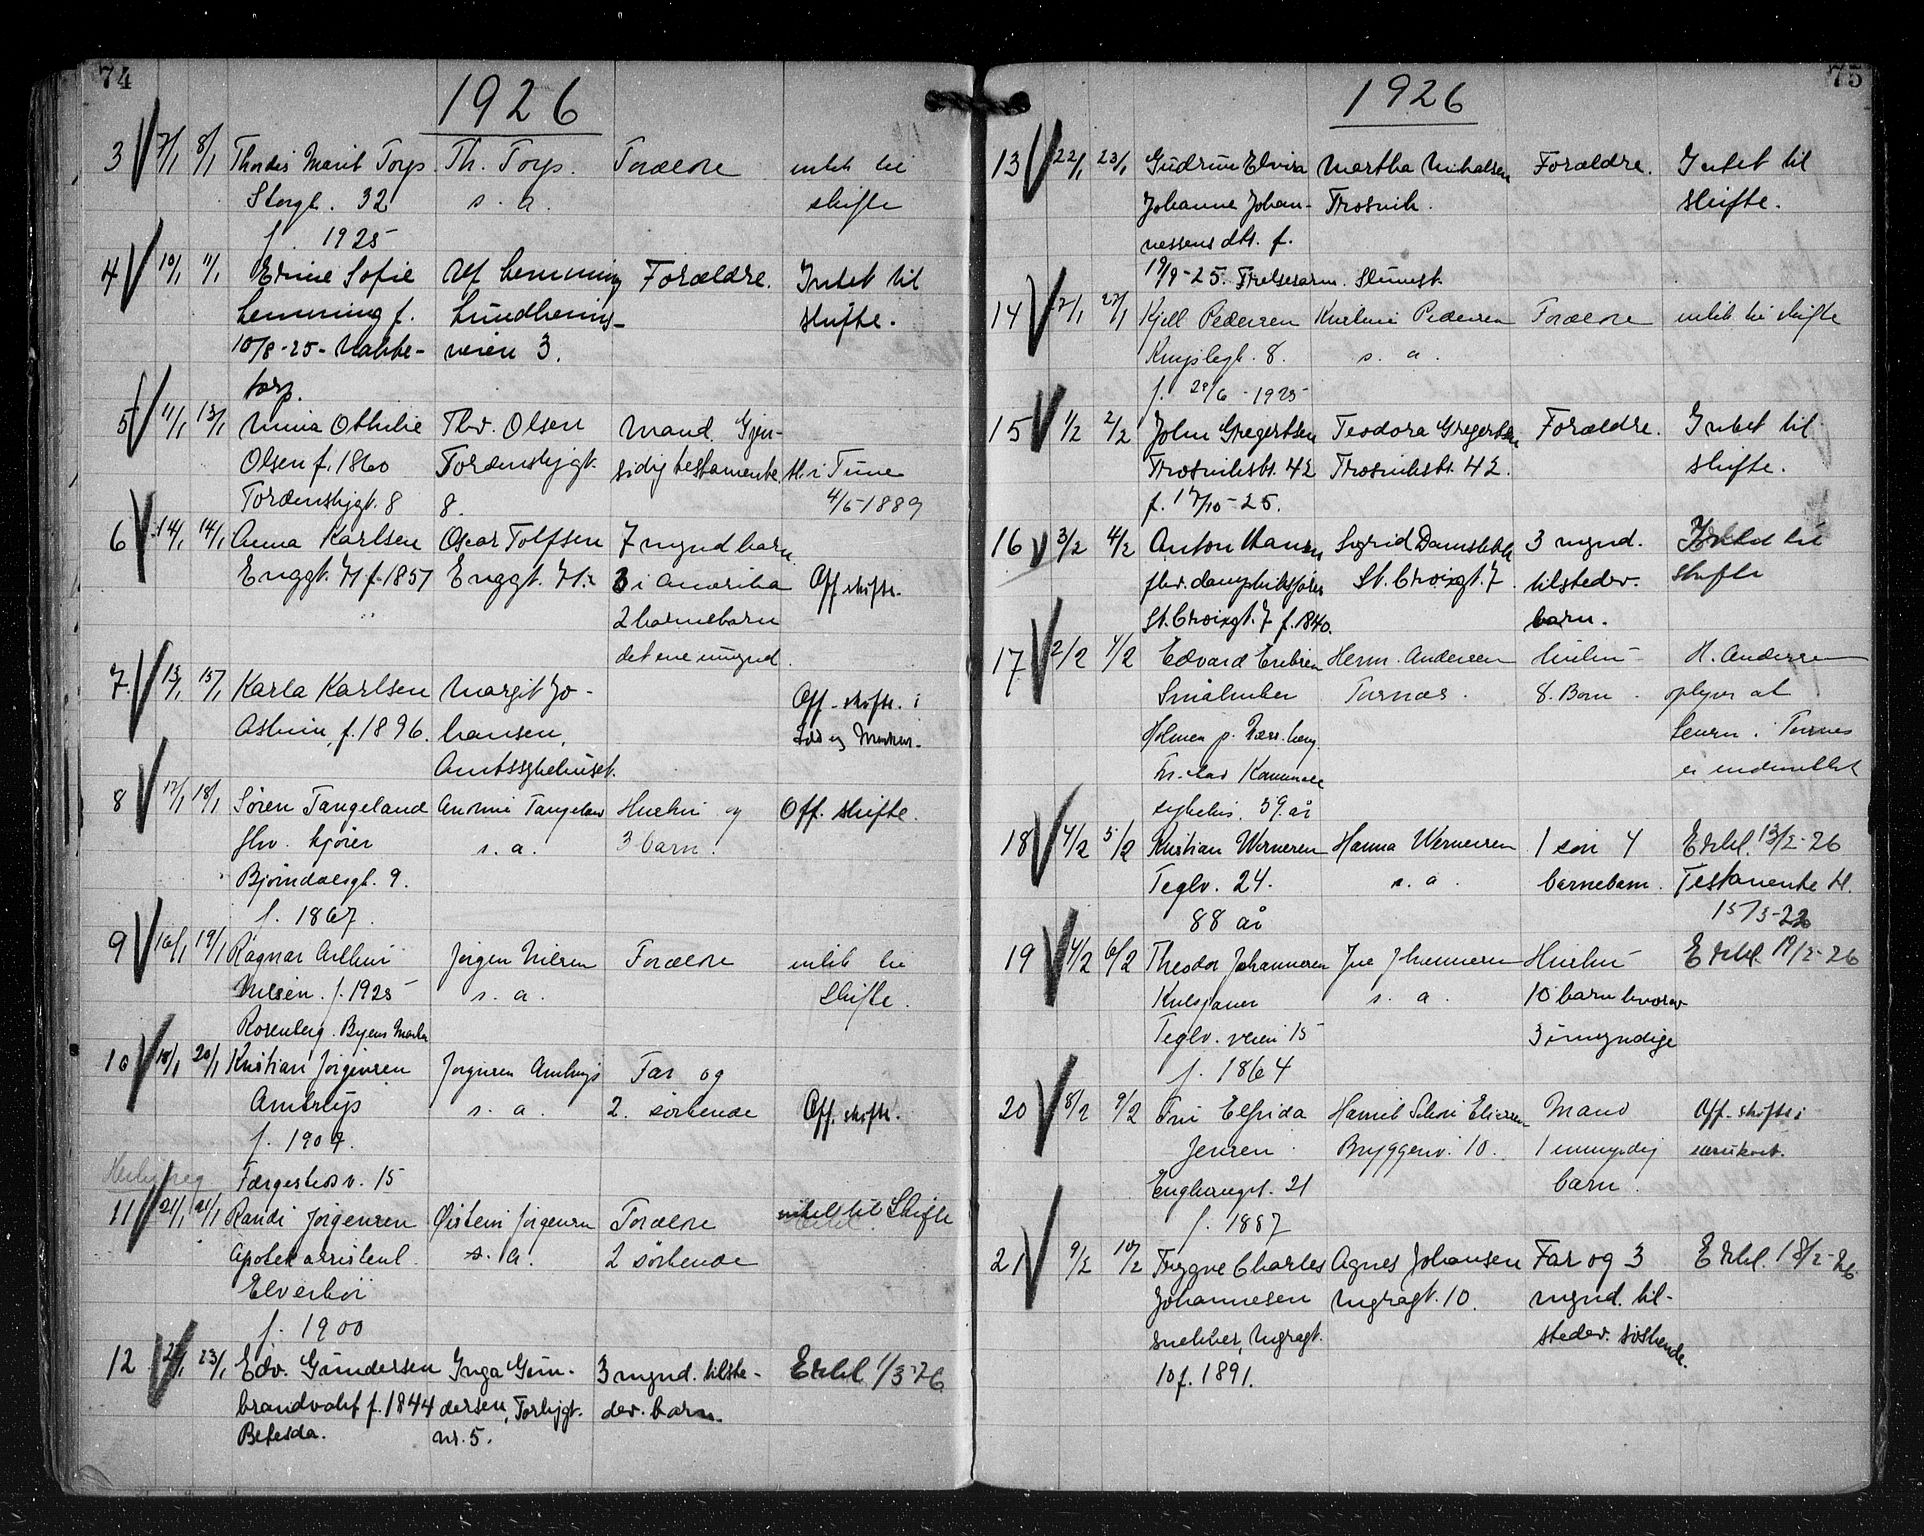 74
1926
3 7/1 8/1 Thordis Marit Torp Th. Torp Forældre intet til
Storgt. 32 s. a. skifte
f. 1925
4 10/1 11/1 Erine Sofie Alf Lemming Forældre. Intet til
Lemming f. Lundheims- skifte.
10/8-25- Nabbe- veien 3.
torp.
5 11/1 13/1 Mina Othilie Thv. Olsen Mand. Gjen-
Olsen f. 1860 Tordenskjgt. sidig testamente tl. i Tune
Tordenskjgt. 8 8. 4/6 1889
6 14/1 14/1 Anna Karlsen Oscar Tolfsen 7 mynd barn
Enggt. 71 f. 1857 Enggt. 71 3 i Amerika Off. skifte.
2 barnebarn
det ene umynd.
7. 13/1 15/1 Karla Karlsen Margit Jo-
Asheim, f. 1896. hansen, Off. skifte. i
Amtssykehuset.
8 17/1 18/1 Søren Tangeland Andrine Tangeland Hustru og Off. skifte.
fhv. kjører s. a. 3 barn.
Bjørndalsgt. 9.
f. 1867.
9 16/1 19/1 Ragnar Arthur Jørgen Nilsen Forældre intet til
Nilsen. f. 1925 s. a. skifte.
Rosenberg. Byens Marker
10 18/1 20/1 Kristian Jørgensen Jørgensen Amtrup Far og
Amtrup s. a. 2. søskende Off. skifte.
f. 1907.
Færgestedsv. 15
11 21/1 21/1 Randi Jørgensen Øistein Jørgensen Forældre intet til Skifte
Apotekassistent s. a. 2 søskende
Elverhøi
f. 1900
12 23/1 Edv. Gundersen Inga Gun- 3 mynd. tilste- Erkl 1/3-26
brandvakt f. 1844 dersen, Torbjgt. dev. barn.
Betesda. nr. 5.
75
1926
13 22/1 23/1 Gudrun Elvira Martha Mikalsen Forældre. Intet til
Johanne Johan- Trosvik. skifte.
nessens dtr. f.
19/9-25. Frelsesarm. Slumst.
14 27/1 Kjell Pedersen Kristine Pedersen Forældre intet til skifte
Krujslegt. 8. s. a.
f. 29/6 - 1925
15 1/2 2/2 John Gregertsen Teodora Gregertsen Forældre. Intet til
Trosvikst. 42 Trosvikst. 42. skifte.
f. 17/10-25.
16 3/2 4/2 Anton Hansen Sigrid Damslet 3 mynd. Intet til
fhv. dampskibsfører St. Croixgt. 7 tilstedev. skifte
St. Croixgt. 7 f. 1840. barn.
17 2/2 4/2 Edvard Eriksen Herm. Andersen Hustru H. Andersen
Småluker Tornæs. 8. Barn. oplyser at
Holmen p. Kråkerøy lensm. i Tornes
Fr.stad Kommunale er underrettet
sykehus. 59. år
18 4/2 5/2 Kristian Wernersen Hanna Wernersen 1 søn 4 Erkl. 13/2-26
Teglv. 24. s. a. barnebarn. Testamente tl.
88 år 15/3-22
19 4/2 6/2 Theodor Johannesen Ine Johannesen Hustru Erkl. 17/2-26
Kulsjauer s. a. 10 barn hvorav
Teglv. veien 15 3 umyndige
f. 1864
20 8/2 9/2 Fru Elfrida Mand Off. skifte i
Jensen Bryggeriv. 10. 1 umyndig særskeat.
Enghaugst. 21 barn.
f. 1887
21 9/2 10/2 Trygve Charles Agnes Johansen Far og 3 Erkl. 18/2-26
Johannesen Nygragt. 10. mynd. til-
snekker, Nygragt. stedev. søskende.
10 f. 1891.